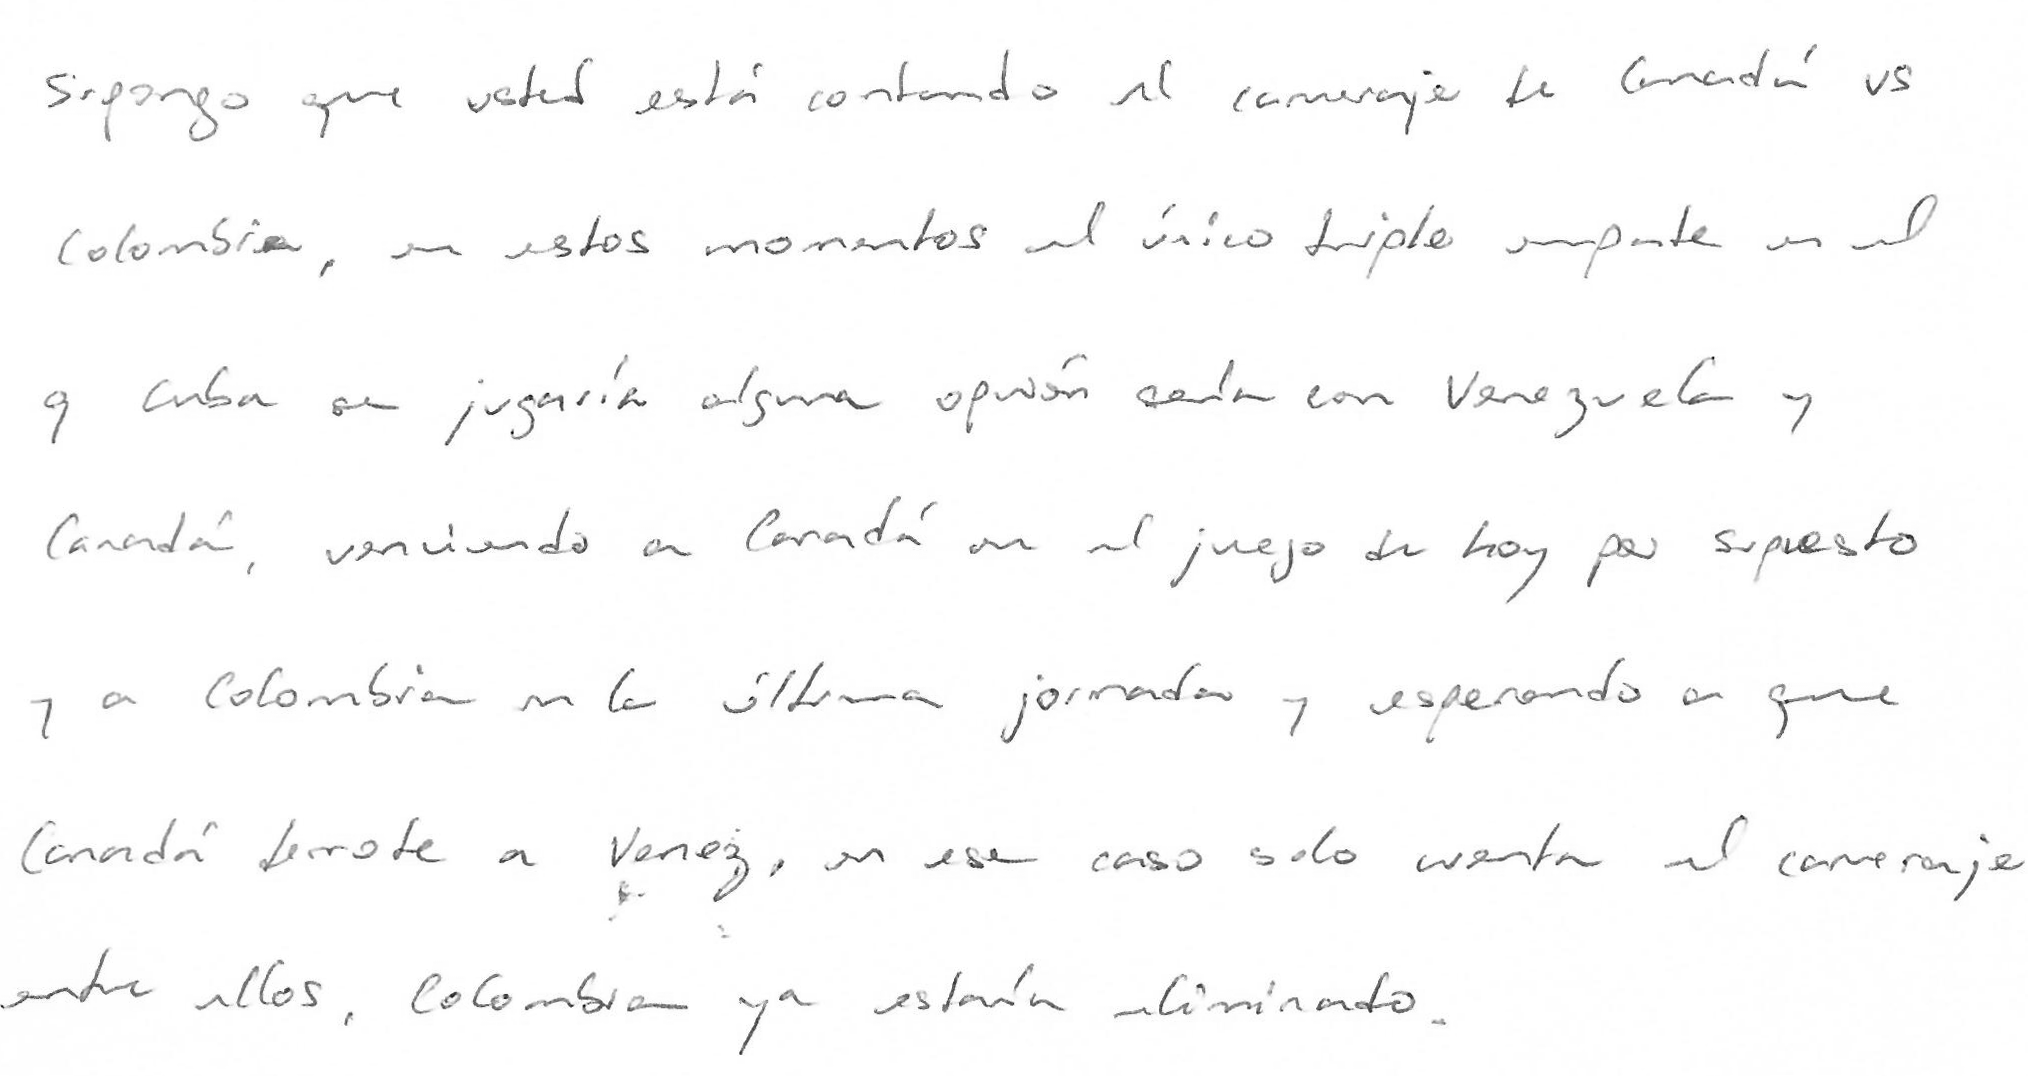 Supongo que usted está contando el carreraje de Canadá vs
Colombia, en estos momentos el único triple empate en el
q Cuba se jugaría alguna opción sería con Venezuela y
Canadá, venciendo a Canadá en el juego de hoy por supuesto
y a Colombia en la última jornada y esperando a que
Canadá derrote a Venez, en ese caso solo cuenta el carreraje
entre ellos, Colombia ya estaría eliminado.